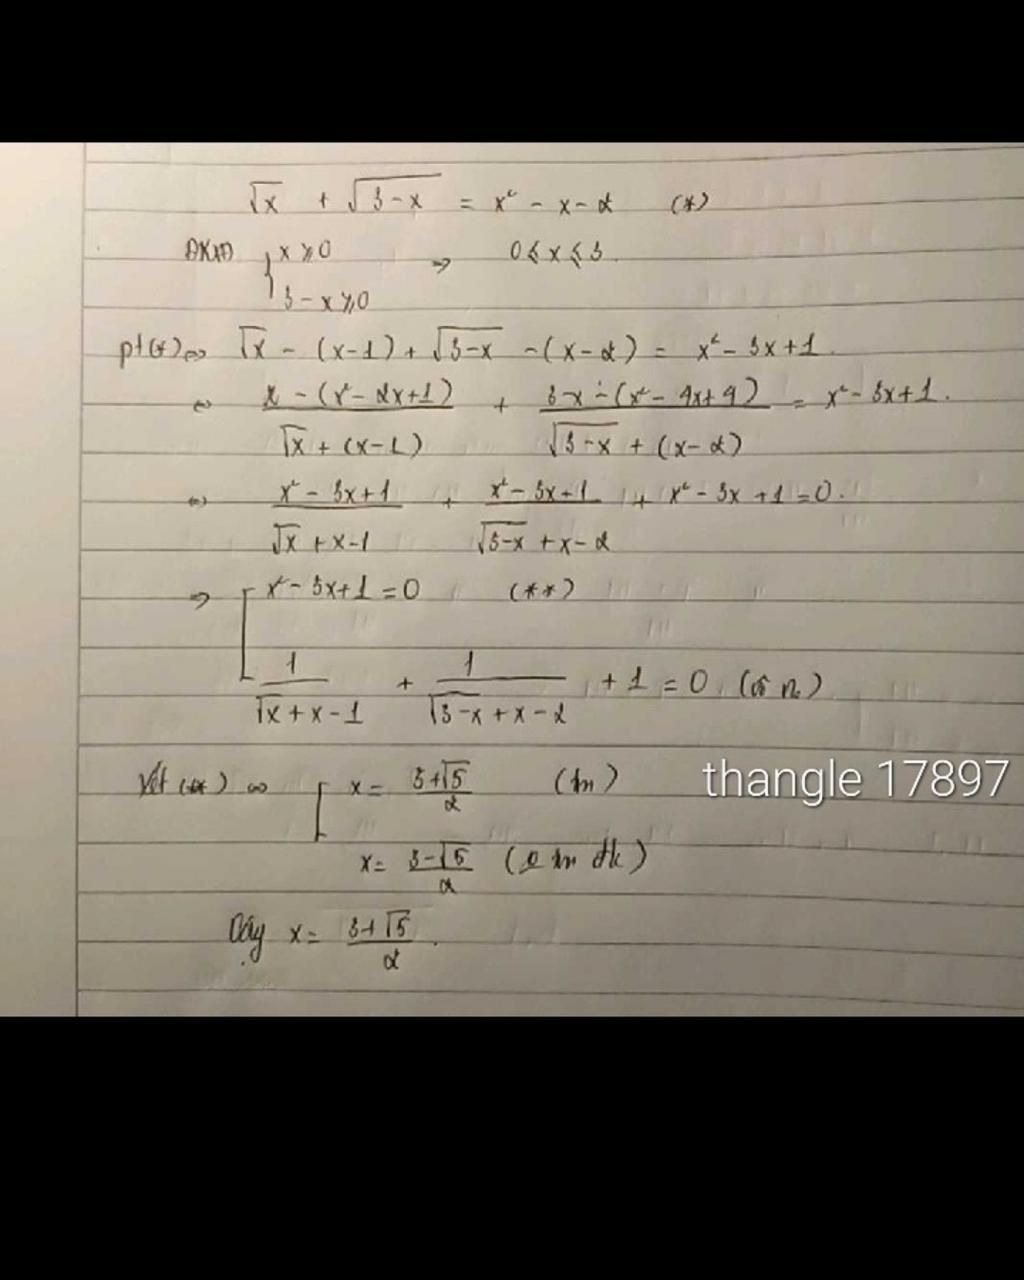 √x + √(3-x) = x² - x - 2 (*)
ĐKXĐ { x ≥ 0 ; 3 - x ≥ 0 ⇒ 0 ≤ x ≤ 3.
pt(*) ⇔ √x - (x-1) + √(3-x) - (x-2) = x² - 3x + 1.
⇔ (x - (x² - 2x + 1))/(√x + (x-1)) + (3-x - (x² - 4x + 4))/(√(3-x) + (x-2)) = x² - 3x + 1.
⇔ (x² - 3x + 1)/(√x + x - 1) + (x² - 3x + 1)/(√(3-x) + x - 2) + x² - 3x + 1 = 0.
⇒ [ x² - 3x + 1 = 0 (**)
1/(√x + x - 1) + 1/(√(3-x) + x - 2) + 1 = 0
⇔ [ x = (3+√5)/2 (tm)
thangle 17897
x = (3-√5)/2 (0 tm đk)
Vậy x = (3+√5)/2.